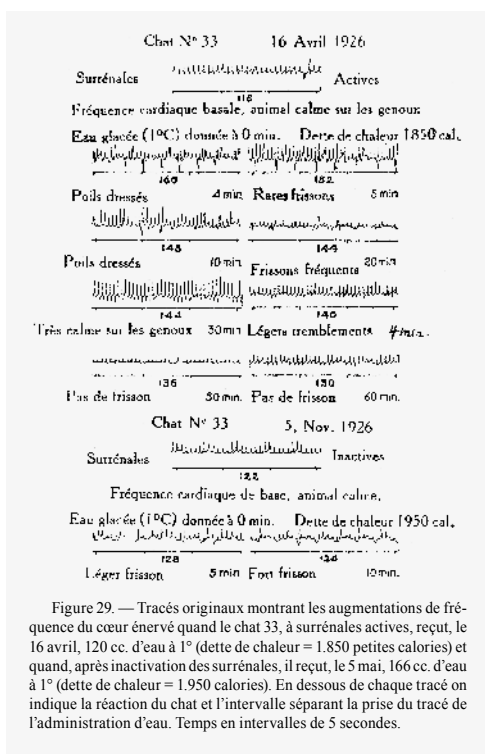 Chat Nº 33 16 Avril 1926
Surrénales Actives
116
Fréquence cardiaque basale, animal calme sur les genoux
Eau glacée (1ºC) donnée à 0 min. Dette de chaleur 1850 cal.
160 152
Poils dressés 4 min. Rares frissons 5 min
148 144
Poils dressés 10 min Frissons fréquents 20 min
144 140
Très calme sur les genoux 30 min Légers tremblements 4 min.
136 130
Pas de frisson 50 min. Pas de frisson 60 min.
Chat Nº 33 5, Nov. 1926
Surrénales Inactives
122
Fréquence cardiaque de base, animal calme.
Eau glacée (1ºC) donnée à 0 min. Dette de chaleur 1950 cal.
128
Léger frisson 5 min Fort frisson 10 min.
Figure 29. — Tracés originaux montrant les augmentations de fré-
quence du cœur énervé quand le chat 33, à surrénales actives, reçut, le
16 avril, 120 cc. d'eau à 1° (dette de chaleur = 1.850 petites calories) et
quand, après inactivation des surrénales, il reçut, le 5 mai, 166 cc. d'eau
à 1° (dette de chaleur = 1.950 calories). En dessous de chaque tracé on
indique la réaction du chat et l'intervalle séparant la prise du tracé de
l'administration d'eau. Temps en intervalles de 5 secondes.